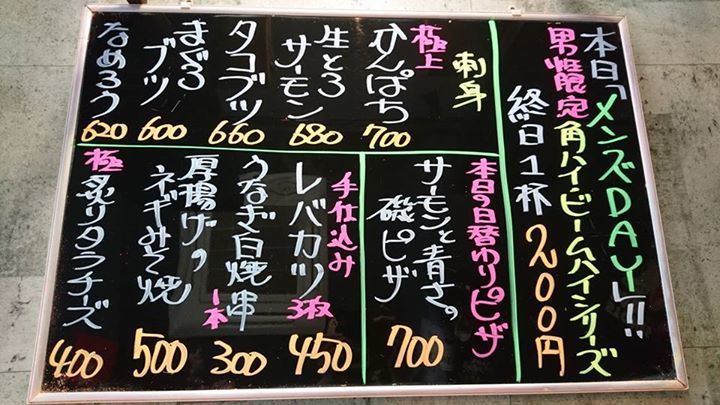 本日「メンズDAY」!!
男性限定 角ハイ・ビームハイシリーズ
終日1杯 200円
刺身
極上
かんぱち 700
生とろサーモン 680
タコブツ 660
まぐろブツ 600
なめろう 620
本日の日替わりピザ
サーモンと青さの
磯ピザ
700
手仕込み
レバカツ 3枚 450
うなぎ白焼串 一本 300
厚揚げの
ネギみそ焼
500
極 炙りタラチーズ 400